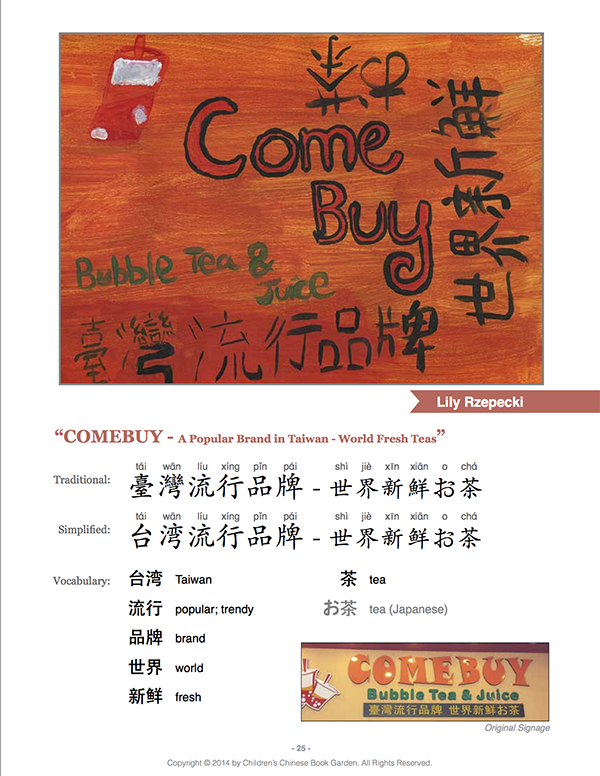 Come
Buy
Bubble Tea &
Juice
臺灣流行品牌
世界新鮮
お茶
Lily Rzepecki
“COMEBUY - A Popular Brand in Taiwan - World Fresh Teas”
tái wān líu xíng pǐn pái shì jiè xīn xiān o chá
Traditional: 臺灣流行品牌 - 世界新鮮お茶
tái wān líu xíng pǐn pái shì jiè xīn xiān o chá
Simplified: 台湾流行品牌 - 世界新鲜お茶
Vocabulary: 台湾 Taiwan 茶 tea
流行 popular; trendy お茶 tea (Japanese)
品牌 brand
世界 world
新鲜 fresh
COMEBUY
Bubble Tea & Juice
臺灣流行品牌 世界新鮮お茶
Original Signage
- 25 -
Copyright © 2014 by Children's Chinese Book Garden. All Rights Reserved.